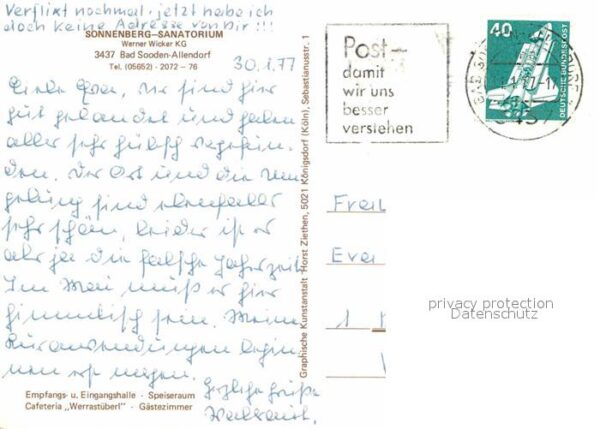 Verflixt nochmal, jetzt habe ich
doch keine Adresse von Dir !!!
SONNENBERG–SANATORIUM
Werner Wicker KG
3437 Bad Sooden-Allendorf
Tel. (05652) - 2072 – 76
30.1.77
Liebe Eva, wir sind hier
gut gelandet und haben
alles sehr hübsch vorgefun-
den. Der Ort und die Um-
gebung sind ebenfalls
sehr schön, leider ist es
aber ja die falsche Jahreszeit.
Im Mai muß es hier
himmlisch sein. Meine
Kuranwendungen begin-
nen erst morgen.
Herzliche Grüße
Waltraut
Empfangs- u. Eingangshalle - Speiseraum
Cafeteria „Werrastüberl" - Gästezimmer
Graphische Kunstanstalt Horst Ziethen, 5021 Königsdorf (Köln), Sebastianusstr. 1
Post–
damit
wir uns
besser
verstehen
40
DEUTSCHE BUNDESPOST
Eva
1
privacy protection
Datenschutz